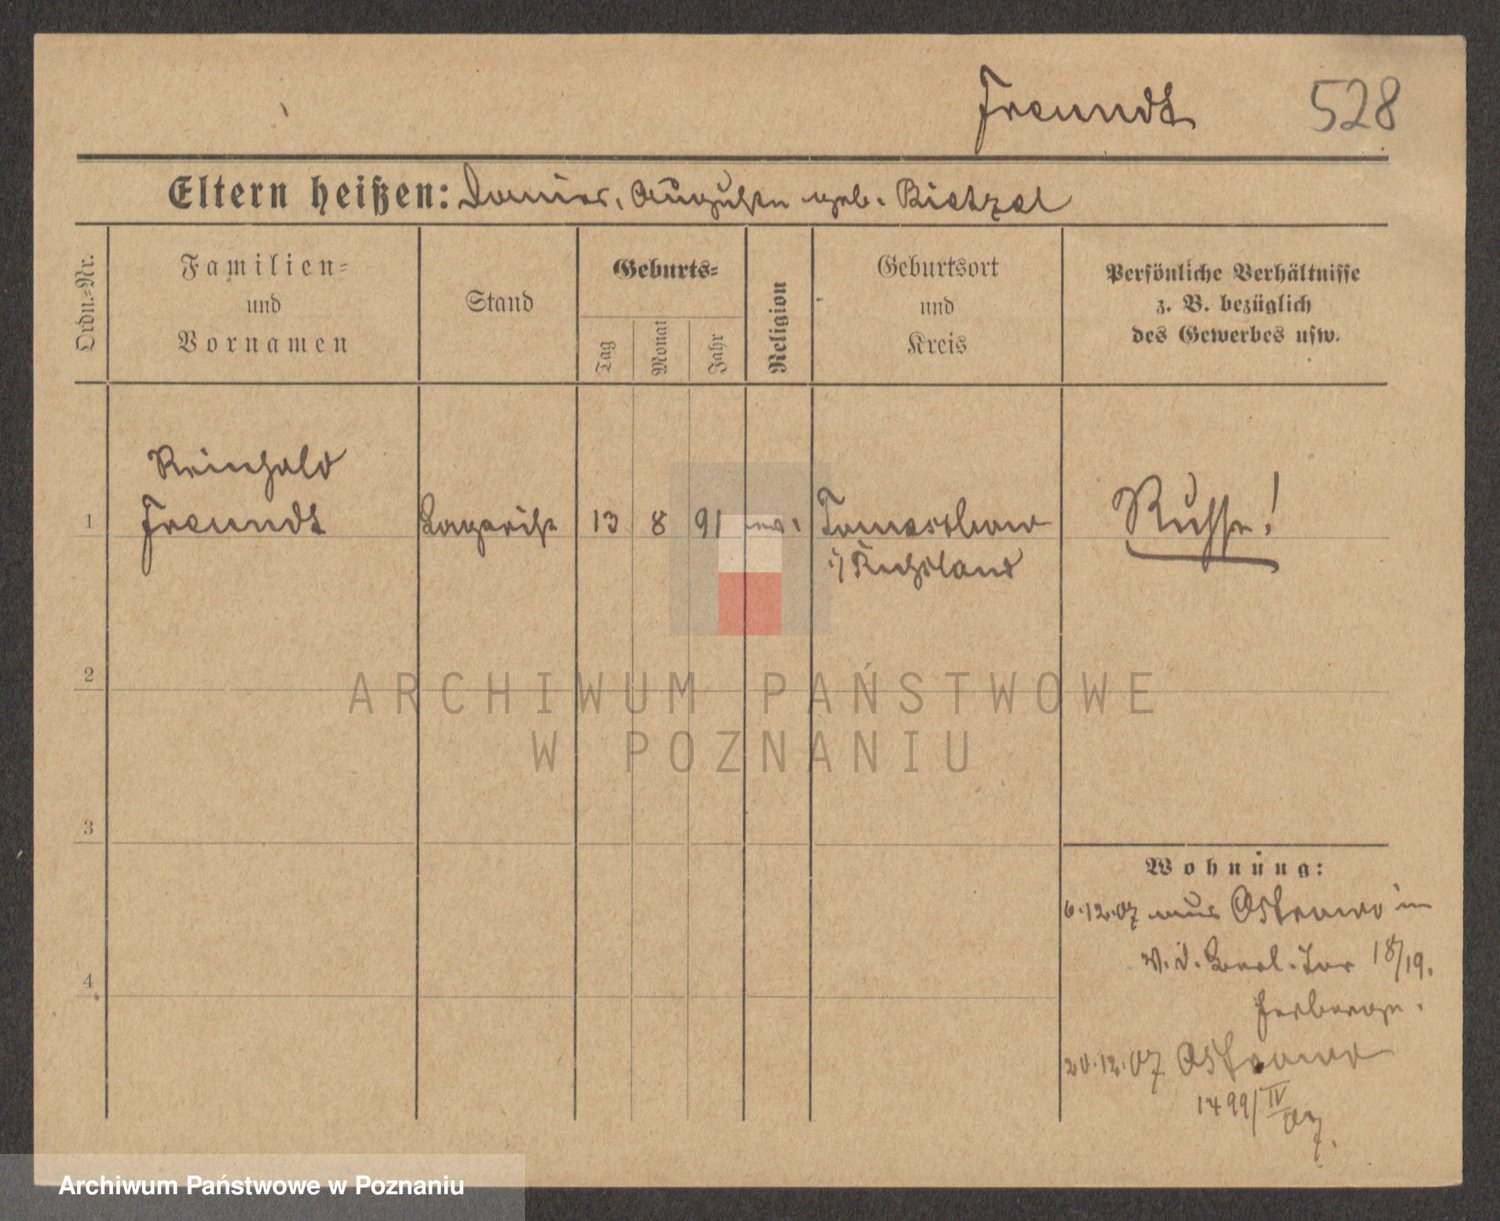 Freundt 528
Eltern heißen: Daniel, Auguste geb. Bietzel
Ordn.-Nr.
Familien-
und
Vornamen
Stand
Geburts-
Tag
Monat
Jahr
Religion
Geburtsort
und
Kreis
Persönliche Verhältnisse
z. B. bezüglich
des Gewerbes usw.
Reinhold
1 Freundt 13 8 91 Russe!
i/ Russland
2
3
4
Wohnung:
6.12.07 aus Ostrowo in
v. d. Berl. Tor 18/19.
Herberge.
20.12.07 Ostrowo
1499/IV
07.
ARCHIWUM PAŃSTWOWE
W POZNANIU
Archiwum Państwowe w Poznaniu